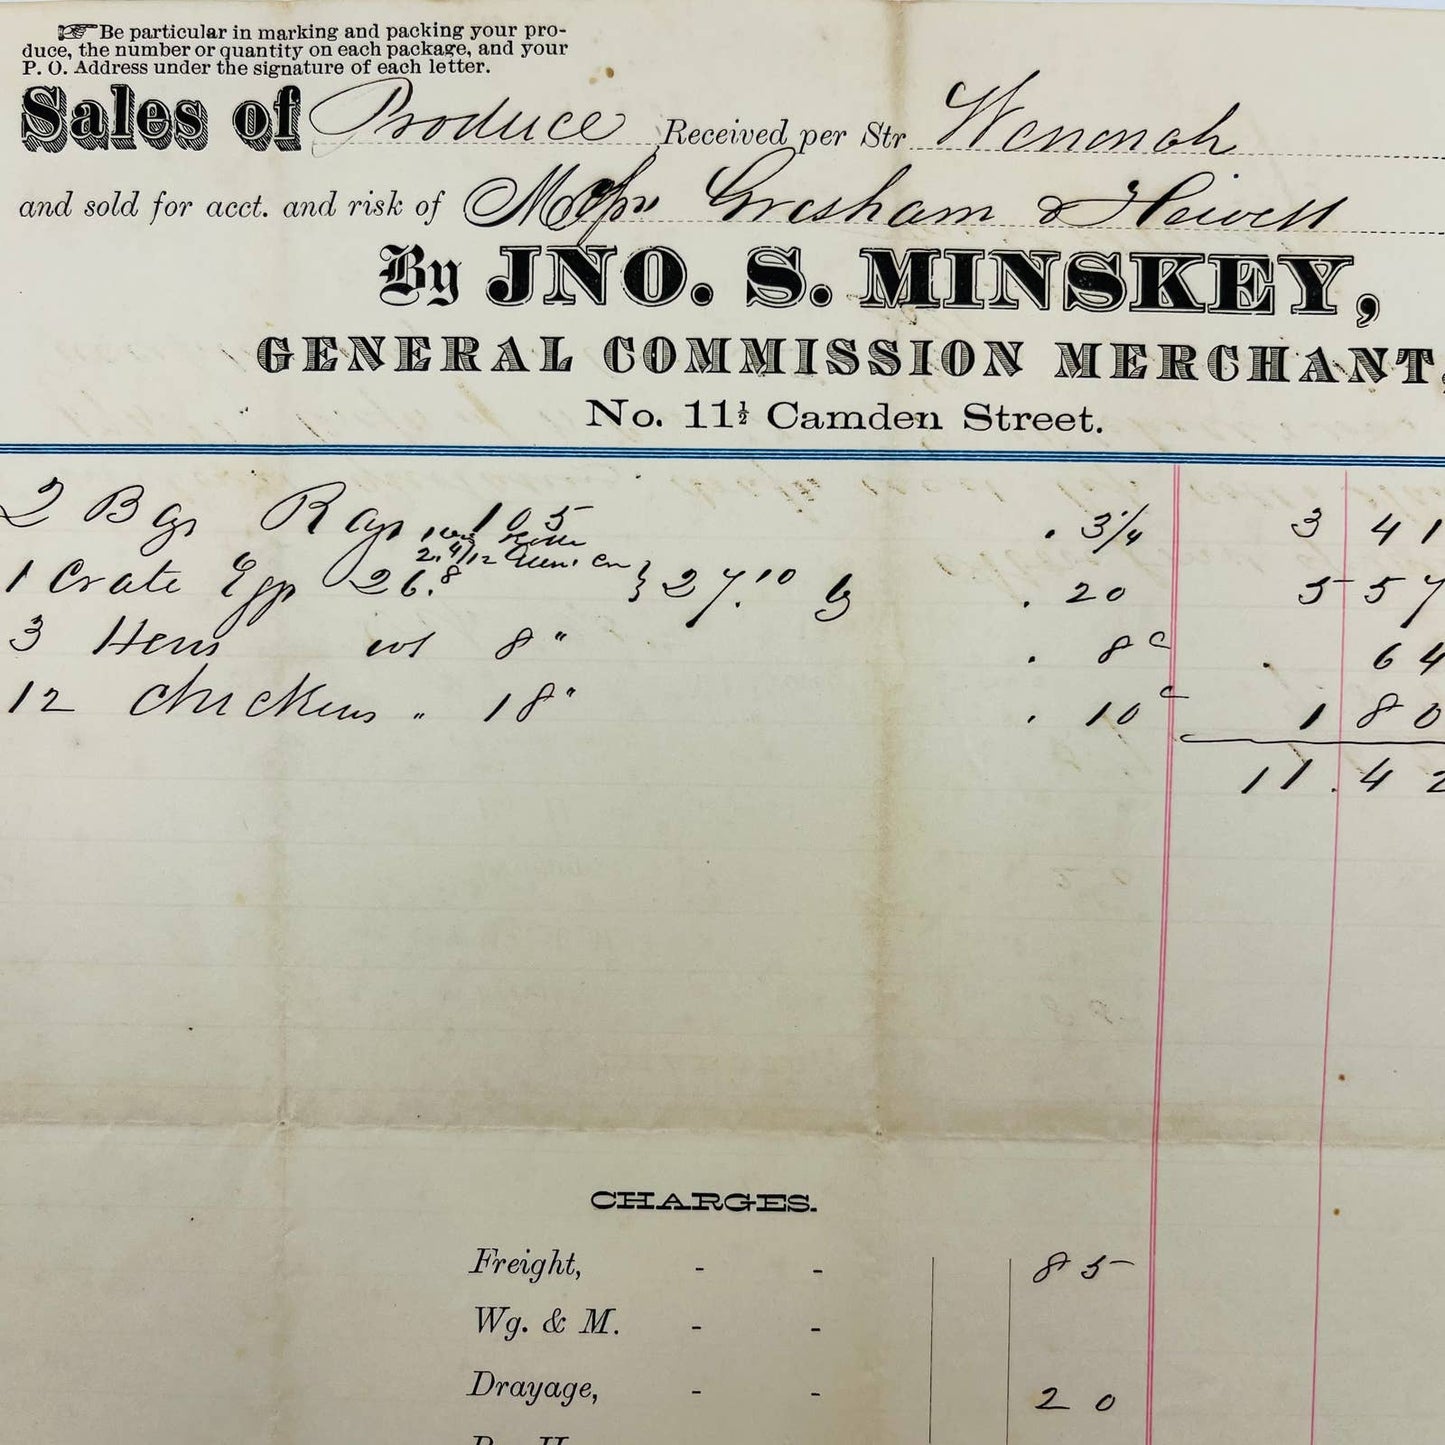 ☞Be particular in marking and packing your pro-
duce, the number or quantity on each package, and your
P. O. Address under the signature of each letter.
Sales of Produce Received per Str Wenonah
and sold for acct. and risk of Gresham & Hewell
By JNO. S. MINSKEY,
GENERAL COMMISSION MERCHANT,
No. 11½ Camden Street.
2 Bgs Rags 105 . 3¼ 3 41
1 Crate Egg 26.8 } 27.10 . 20 5 57
3 Hens wt 8 " . 8c . 64
12 Chickens " 18 " . 10c 1 80
11.42
CHARGES.
Freight, - - 85
Wg. & M. - -
Drayage, - - 20